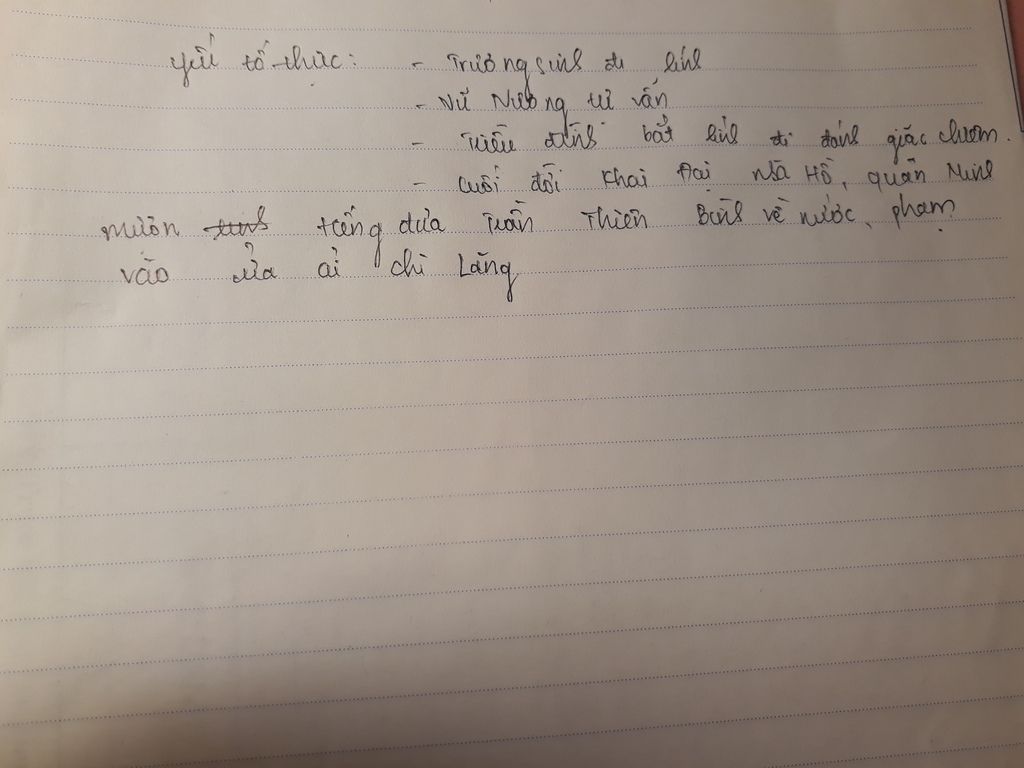 yếu tố thực: - Trương sinh đi lính
- Vũ Nương tự vẫn
- Triều đình bắt lính đi đánh giặc chiêm.
- cuối đời Khai Đại nhà Hồ, quân Minh
mượn tiếng đưa Trần Thiêm Bình về nước, phạm
vào cửa ải chi Lăng